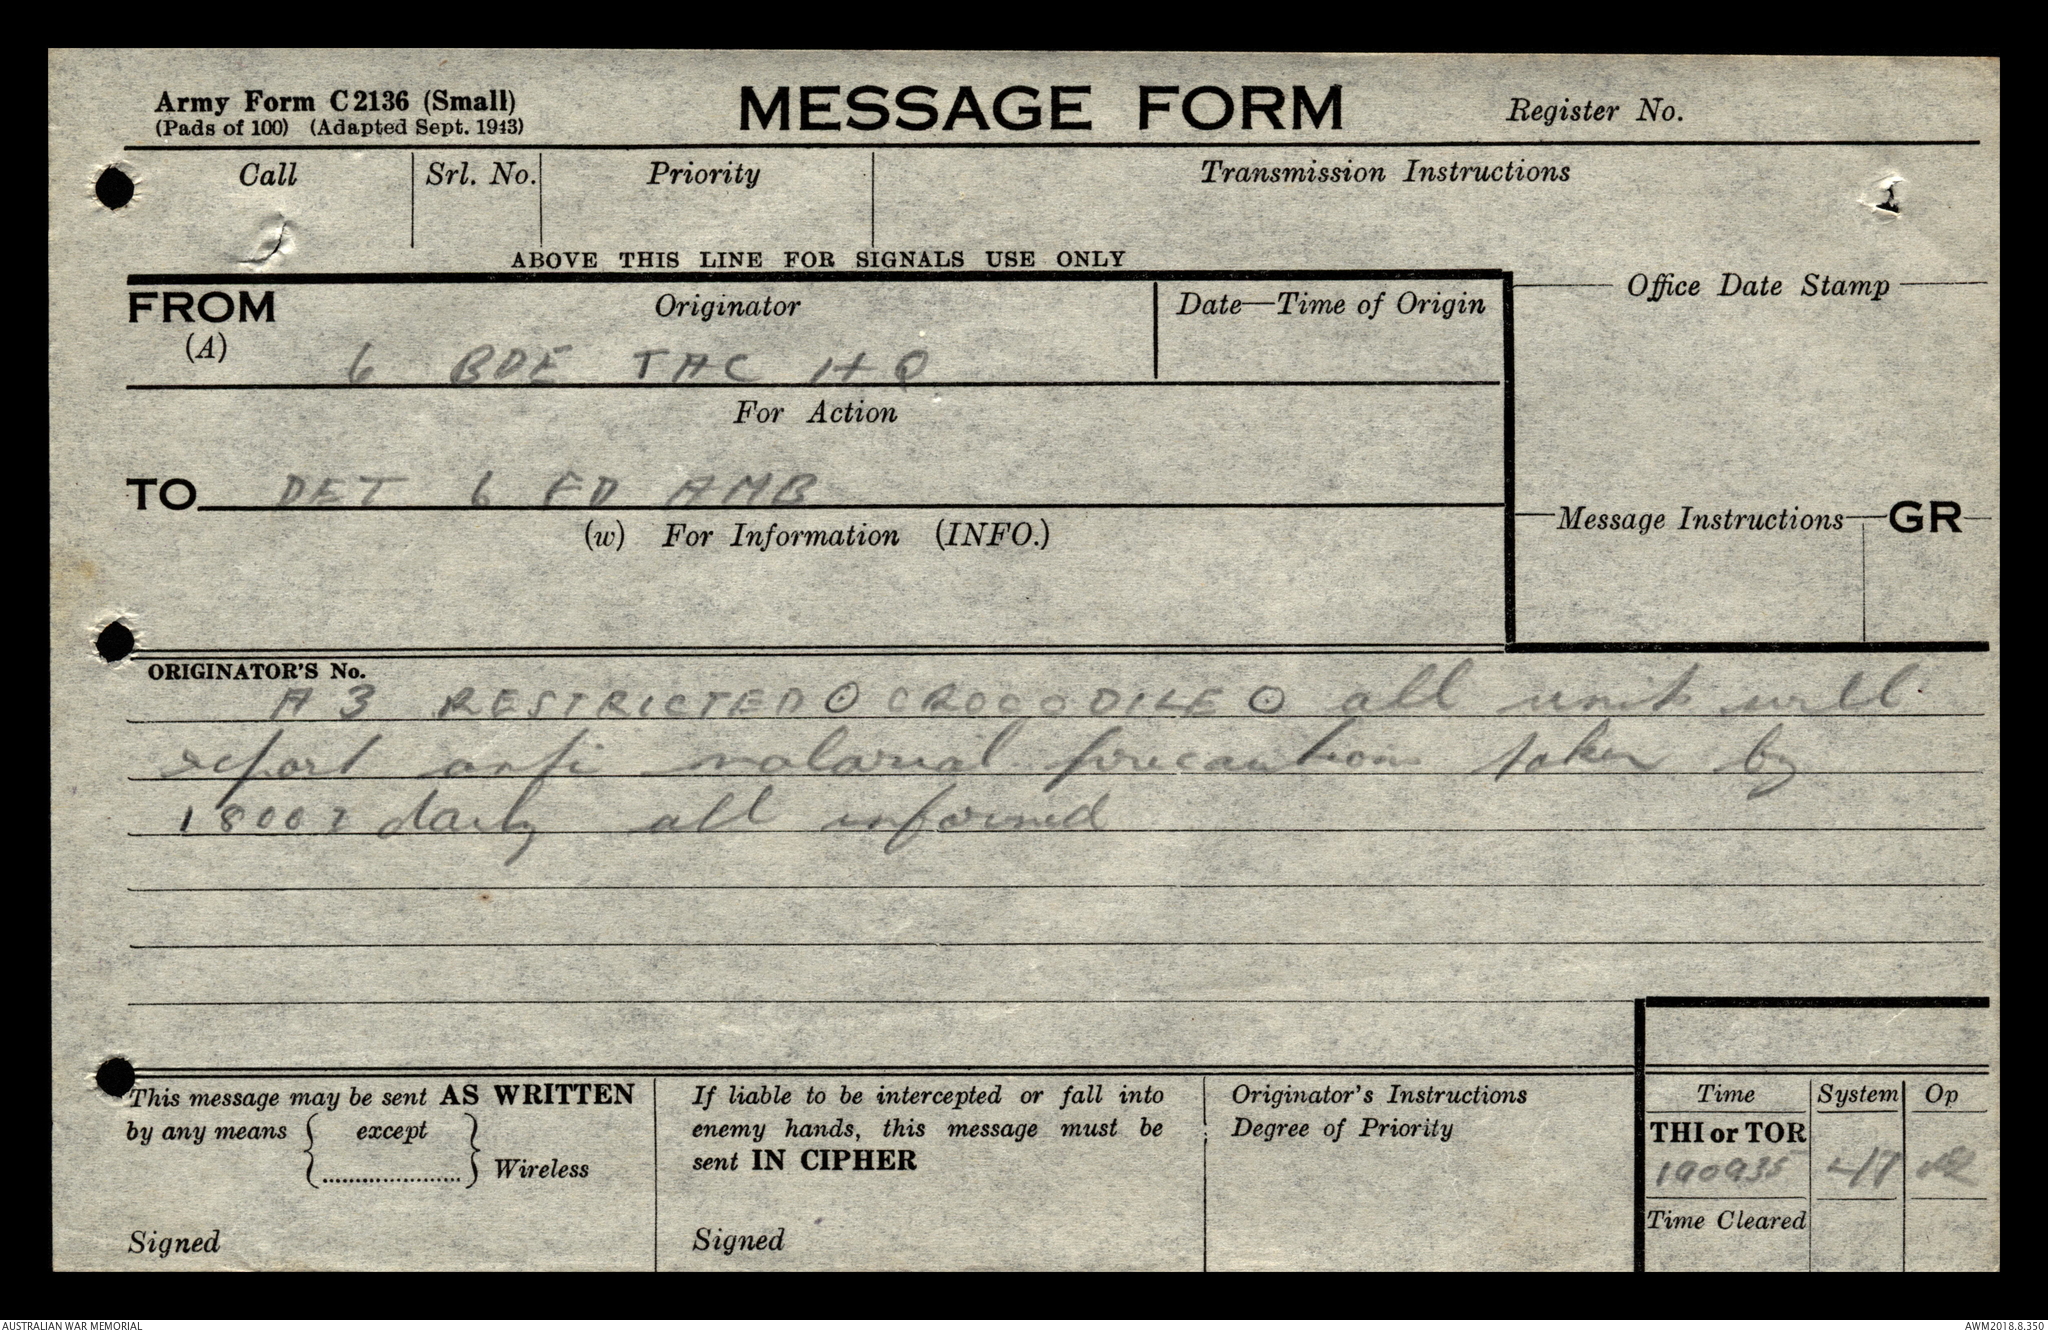 Army Form C2136 (Small)
(Pads of 100) (Adapted Sept. 1943)
MESSAGE FORM
Register No.
Call
Srl. No.
Priority
Transmission Instructions
ABOVE THIS LINE FOR SIGNALS USE ONLY
FROM
(A)
Originator
6 BDE TAC HQ
Date—Time of Origin
Office Date Stamp
For Action
TO DET 6 FD AMB
(w) For Information (INFO.)
Message Instructions GR
ORIGINATOR'S No.
A3 RESTRICTED ⊙ CROCODILE ⊙ all units will
report anti malarial precautions taken by
1800z daily all informed
This message may be sent AS WRITTEN
by any means { except } Wireless
{..................}
Signed
If liable to be intercepted or fall into
enemy hands, this message must be
sent IN CIPHER
Signed
Originator's Instructions
Degree of Priority
Time System Op
THI or TOR
190935
Time Cleared
AUSTRALIAN WAR MEMORIAL
AWM2018.8.350